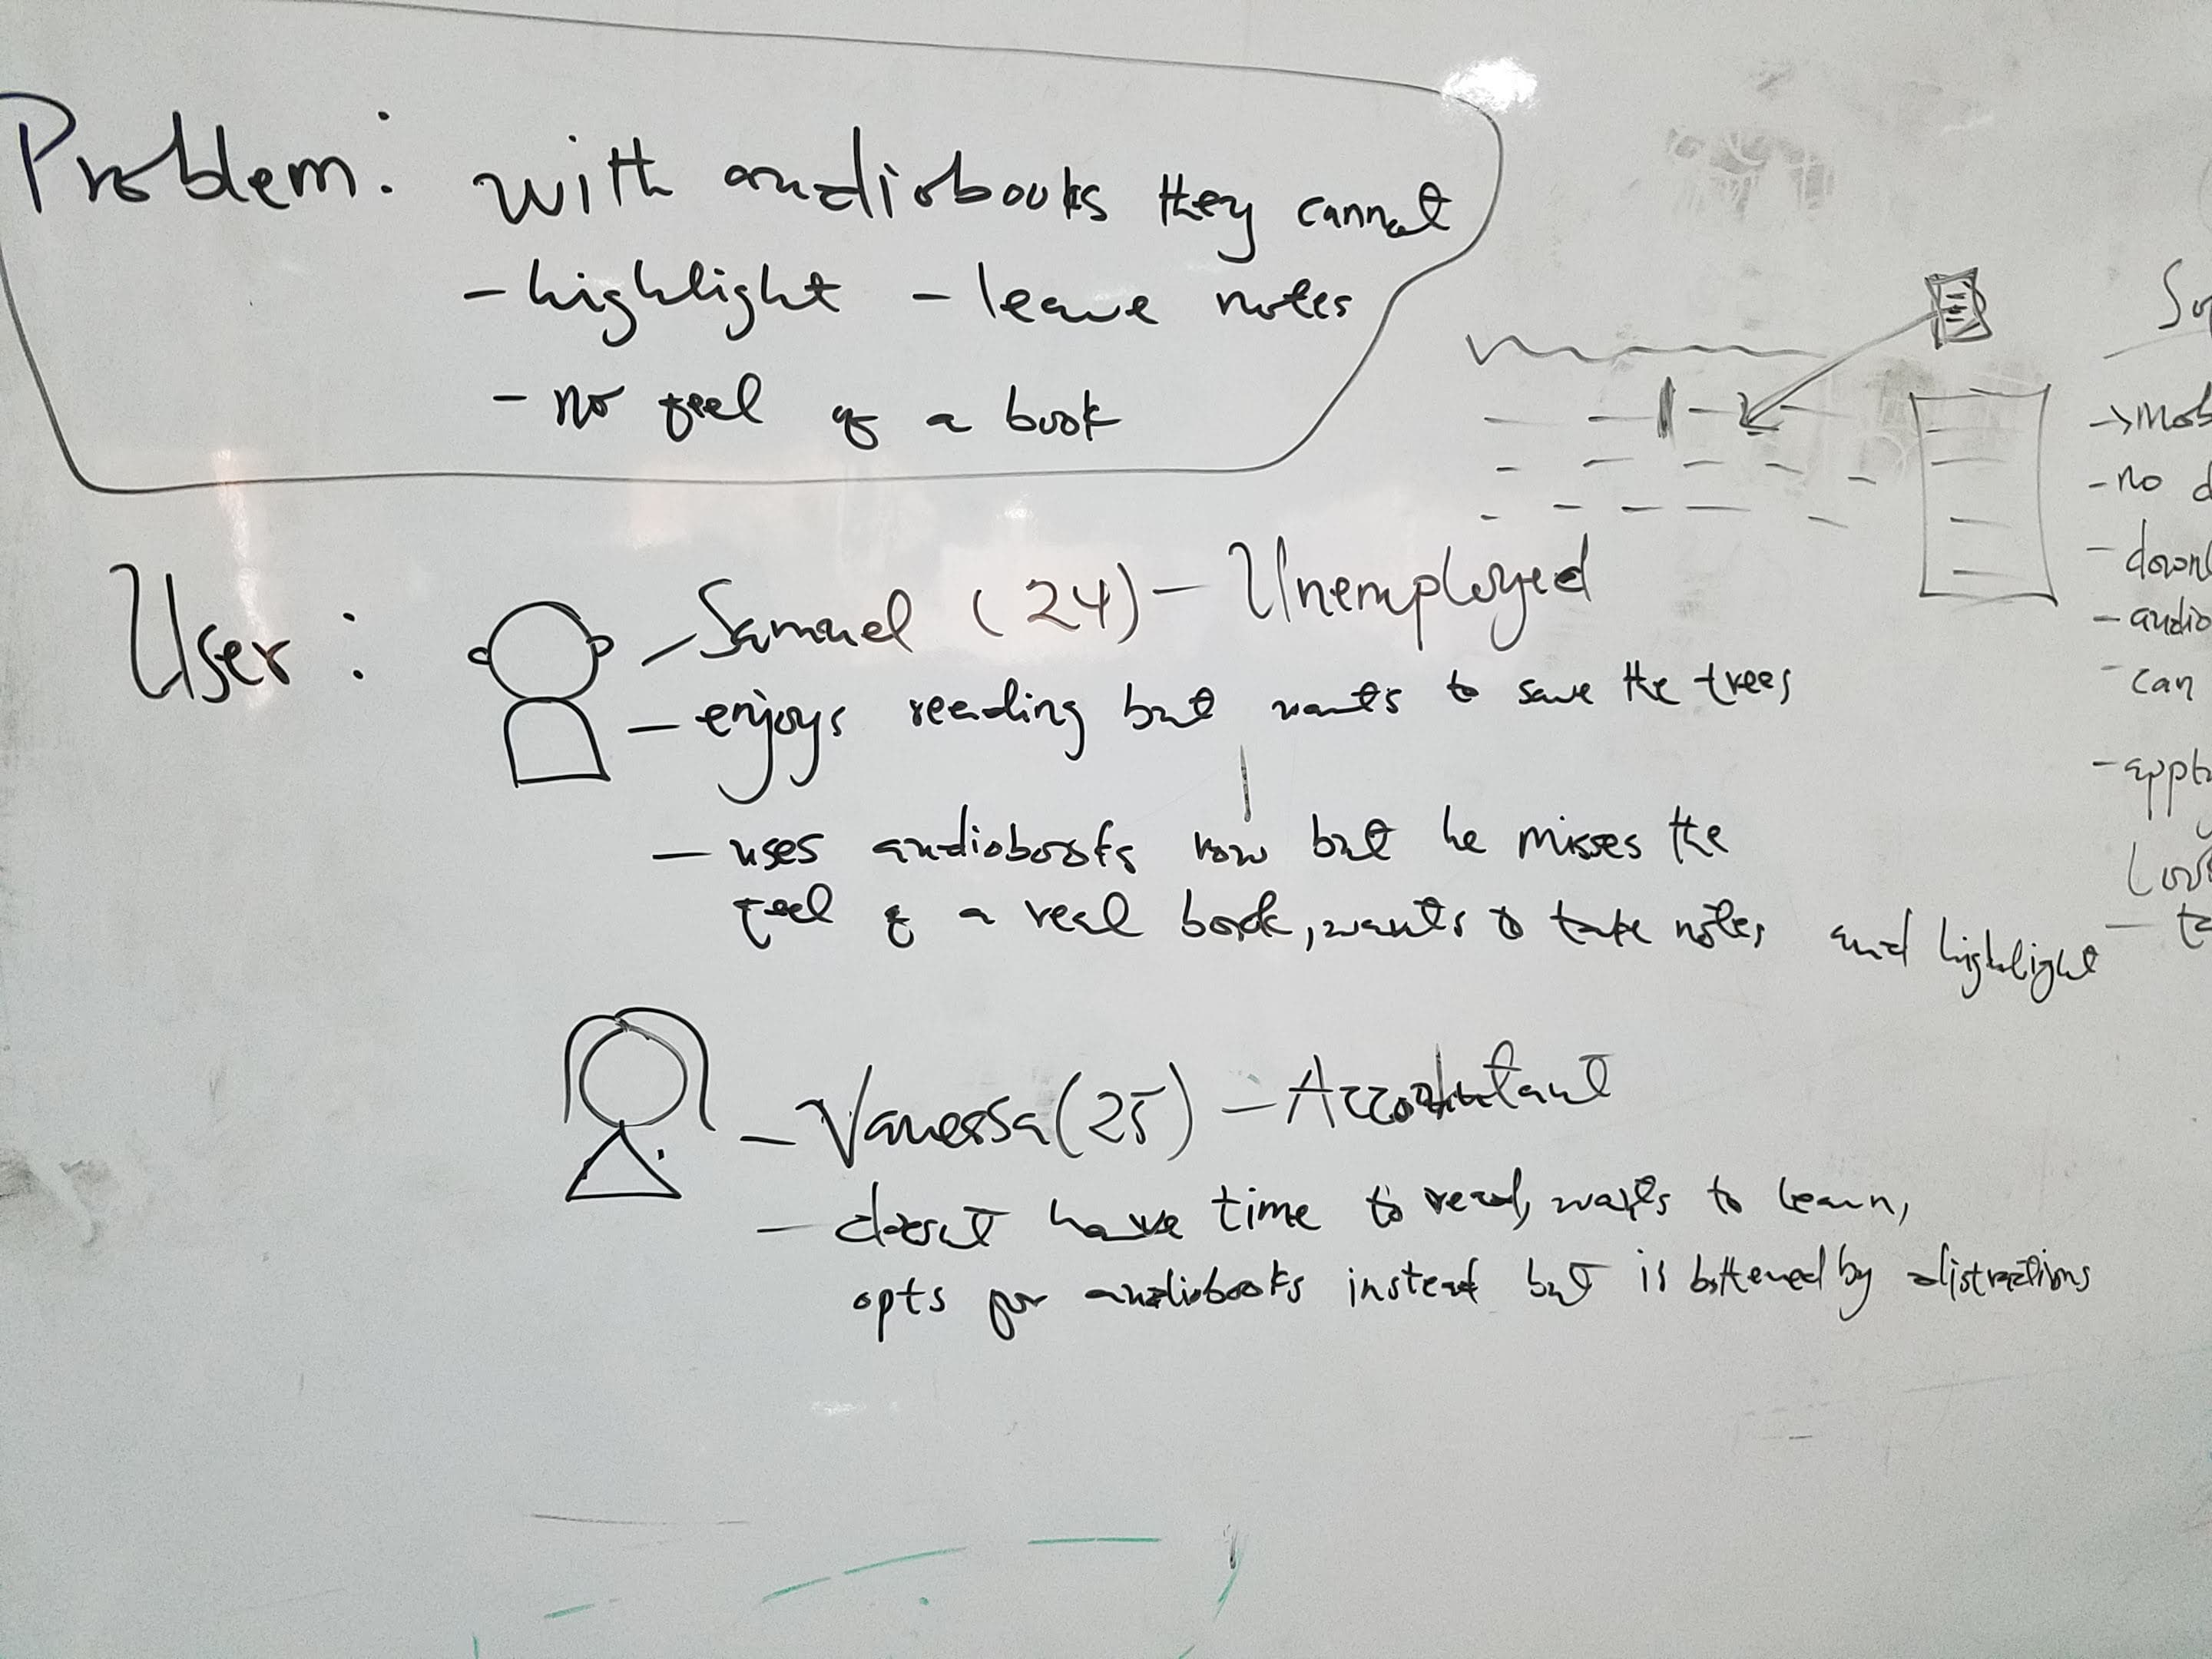 Problem: with audiobooks they cannot
- highlight - leave notes
- no feel of a book
User:
- Samuel (24) - Unemployed
- enjoys reading but wants to save the trees
- uses audiobooks now but he misses the
feel of a real book, wants to take notes and highlight
- Vanessa (25) - Accountant
- doesnt have time to read, wants to learn,
opts for audiobooks instead but is bothered by distractions
- no
- audio
- can